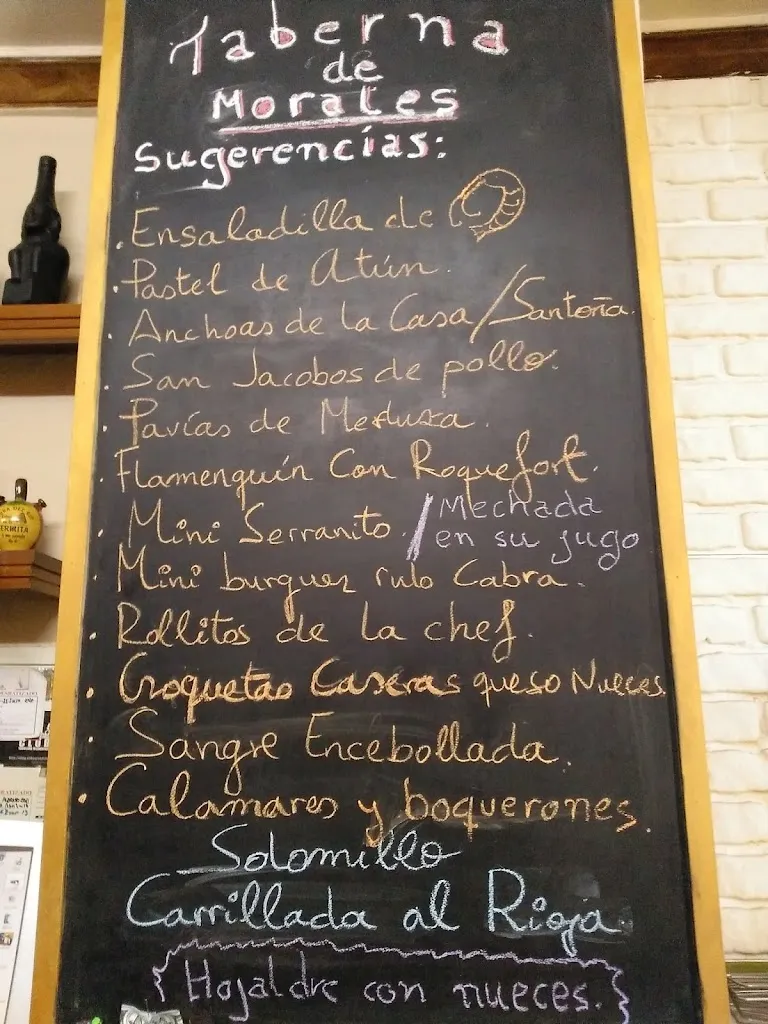 Taberna
de
Morales
Sugerencias:
. Ensaladilla de
. Pastel de Atún.
. Anchoas de la Casa / Santoña.
. San Jacobos de pollo.
. Pavías de Merluza.
. Flamenquín Con Roquefort.
. Mini Serranito. / Mechada
en su jugo
. Mini burguer rulo Cabra.
. Rollitos de la chef.
. Croquetas Caseras queso Nueces.
. Sangre Encebollada.
. Calamares y boquerones.
Solomillo
Carrillada al Rioja
{Hojaldre con nueces.}